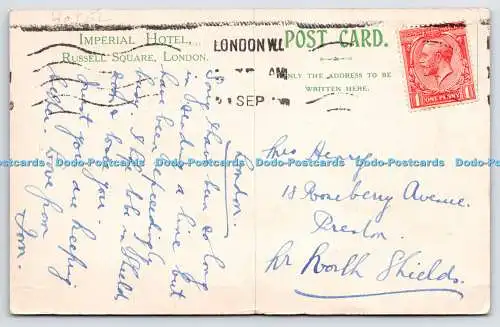 IMPERIAL HOTEL,
RUSSELL SQUARE, LONDON.
LONDON W.1.
AM
SEP
POST CARD.
ONLY THE ADDRESS TO BE
WRITTEN HERE.
ONE PENNY
London
Sorry I have been so long
in sending a line but
have been exceedingly
busy. I shall be in Shields
to
you. are keeping
Love from
Tom.
Mrs
18 Roseberry Avenue.
Preston
Nr North Shields.
Dodo-Postcards Dodo-Postcards Dodo-Postcards Dodo-Postcards Dodo-Postcards Dodo-Postcards